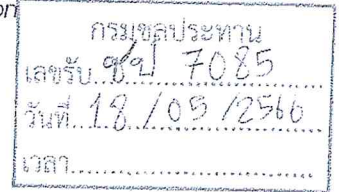 on
กรมชลประทาน
เลขรับ ชป 7085
วันที่ 18 / 05 / 2566
เวลา